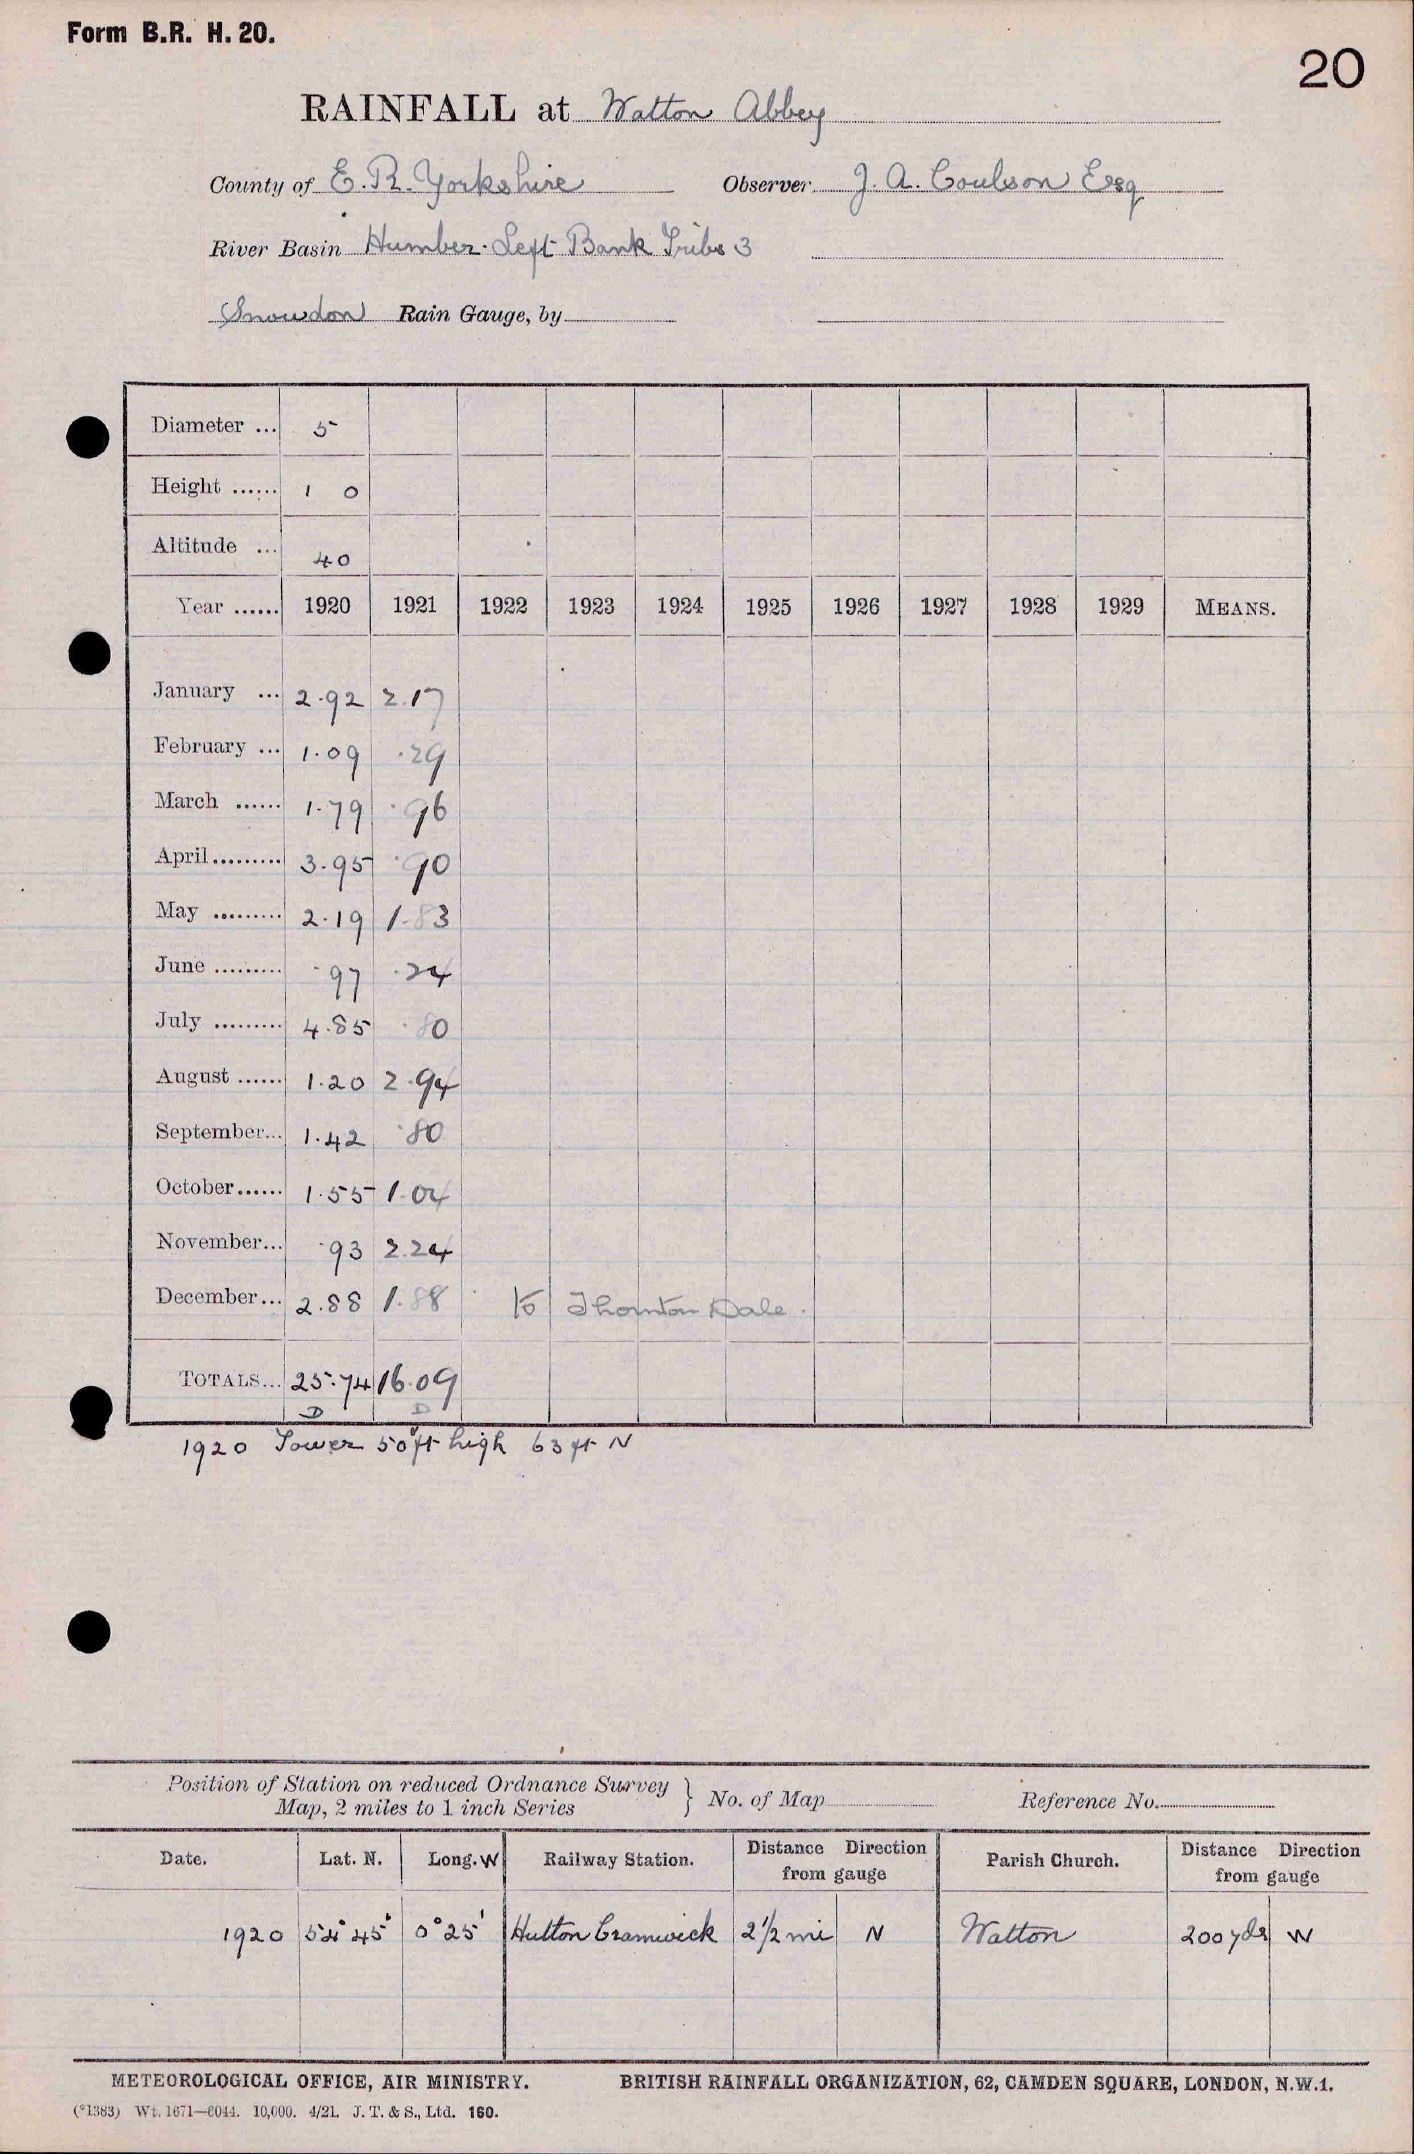 Form B.R. H. 20.
20
RAINFALL at Watton Abbey
County of E. R. Yorkshire Observer J. A. Coulson Esq
River Basin Humber. Left Bank Tribs 3
Snowdon Rain Gauge, by
Diameter ... 5
Height ...... 1 0
Altitude ... 40
Year ...... 1920 1921 1922 1923 1924 1925 1926 1927 1928 1929 MEANS.
January ... 2.92 2.17
February ... 1.09 .29
March ...... 1.79 .96
April ......... 3.95 .90
May ......... 2.19 1.83
June ......... .97 .24
July ......... 4.85 .80
August ...... 1.20 2.94
September... 1.42 .80
October...... 1.55 1.04
November... .93 2.24
December... 2.88 1.88 to Thornton Dale.
TOTALS... 25.74 16.09
D D
1920 Tower 50 ft high 63 ft N
Position of Station on reduced Ordnance Survey
Map, 2 miles to 1 inch Series } No. of Map Reference No.
Date. Lat. N. Long. W Railway Station. Distance Direction from gauge Parish Church. Distance Direction from gauge
1920 54° 45' 0° 25' Hutton Cranswick 2 1/2 mi N Watton 200 yds W
METEOROLOGICAL OFFICE, AIR MINISTRY. BRITISH RAINFALL ORGANIZATION, 62, CAMDEN SQUARE, LONDON, N.W.1.
(*1383) Wt. 1671—6044. 10,000. 4/21. J. T. & S., Ltd. 160.